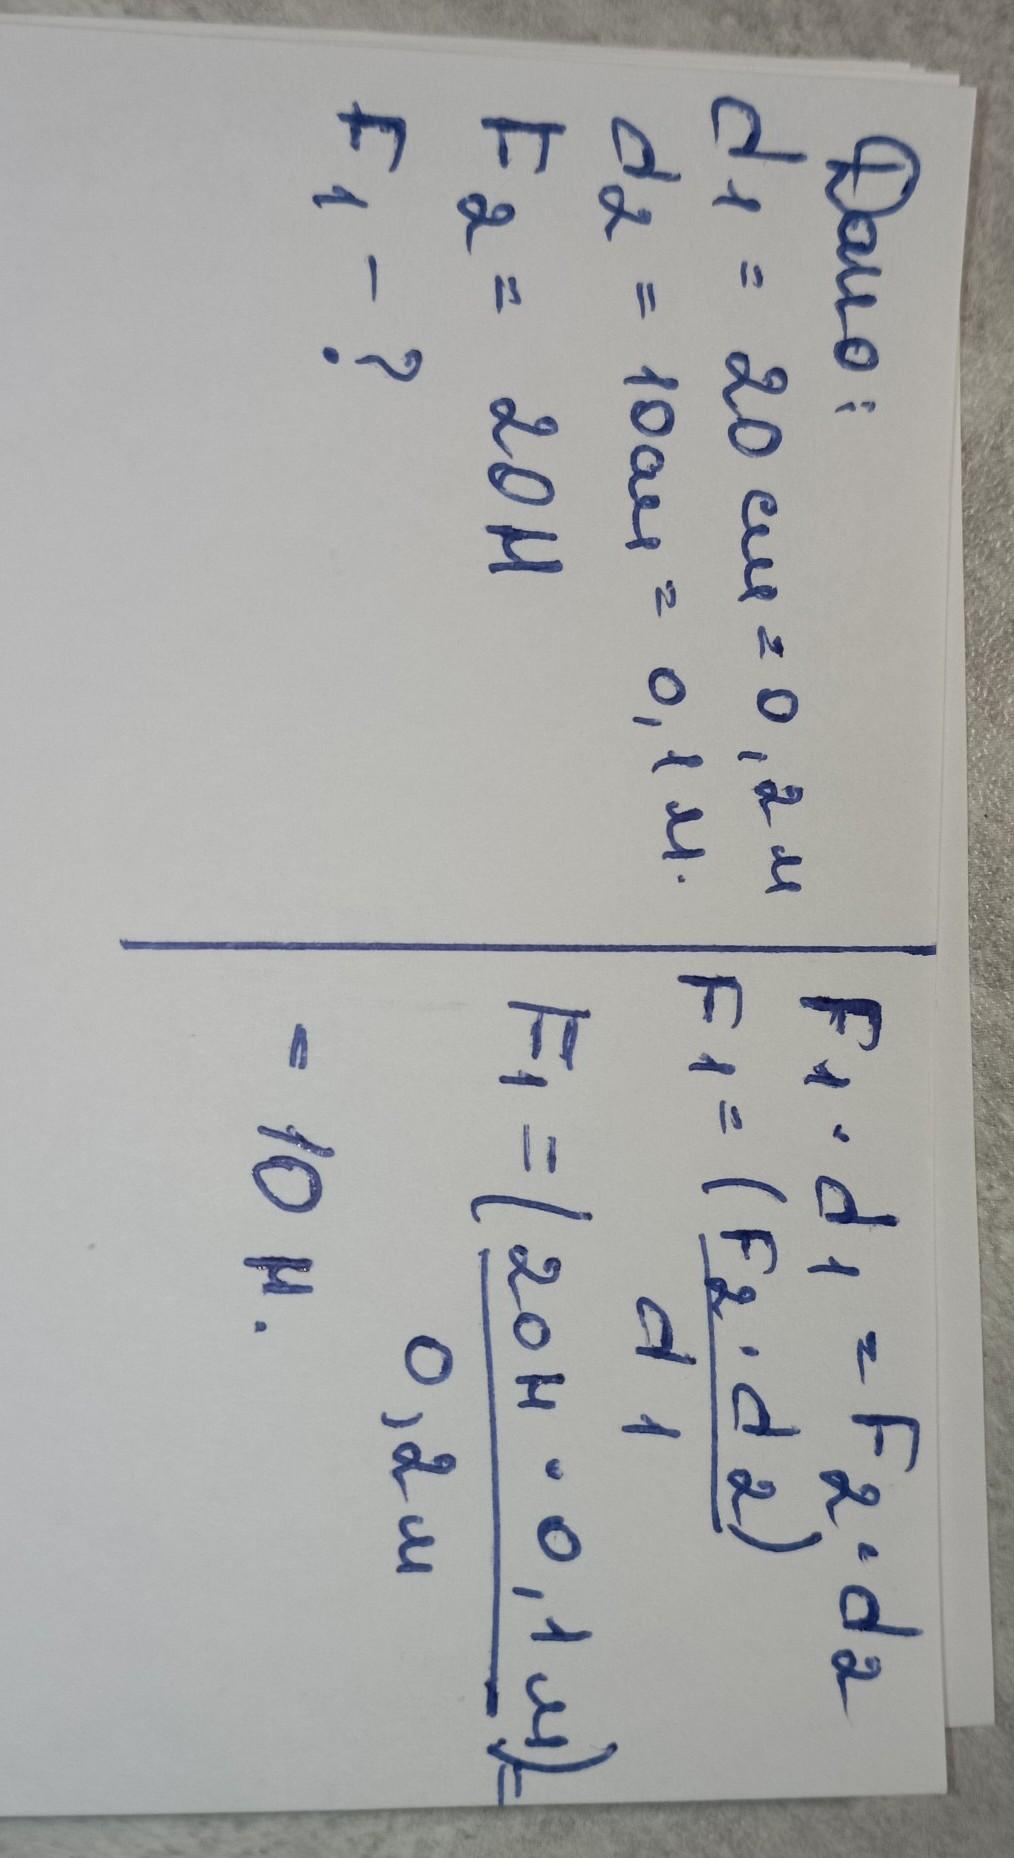 Дано:
d1 = 20 см = 0,2 м
d2 = 10 см = 0,1 м.
F2 = 20 Н
F1 - ?
F1 · d1 = F2 · d2
F1 = (F2 · d2)
d1
F1 = (20 н · 0,1 м) =
0,2 м
= 10 н.